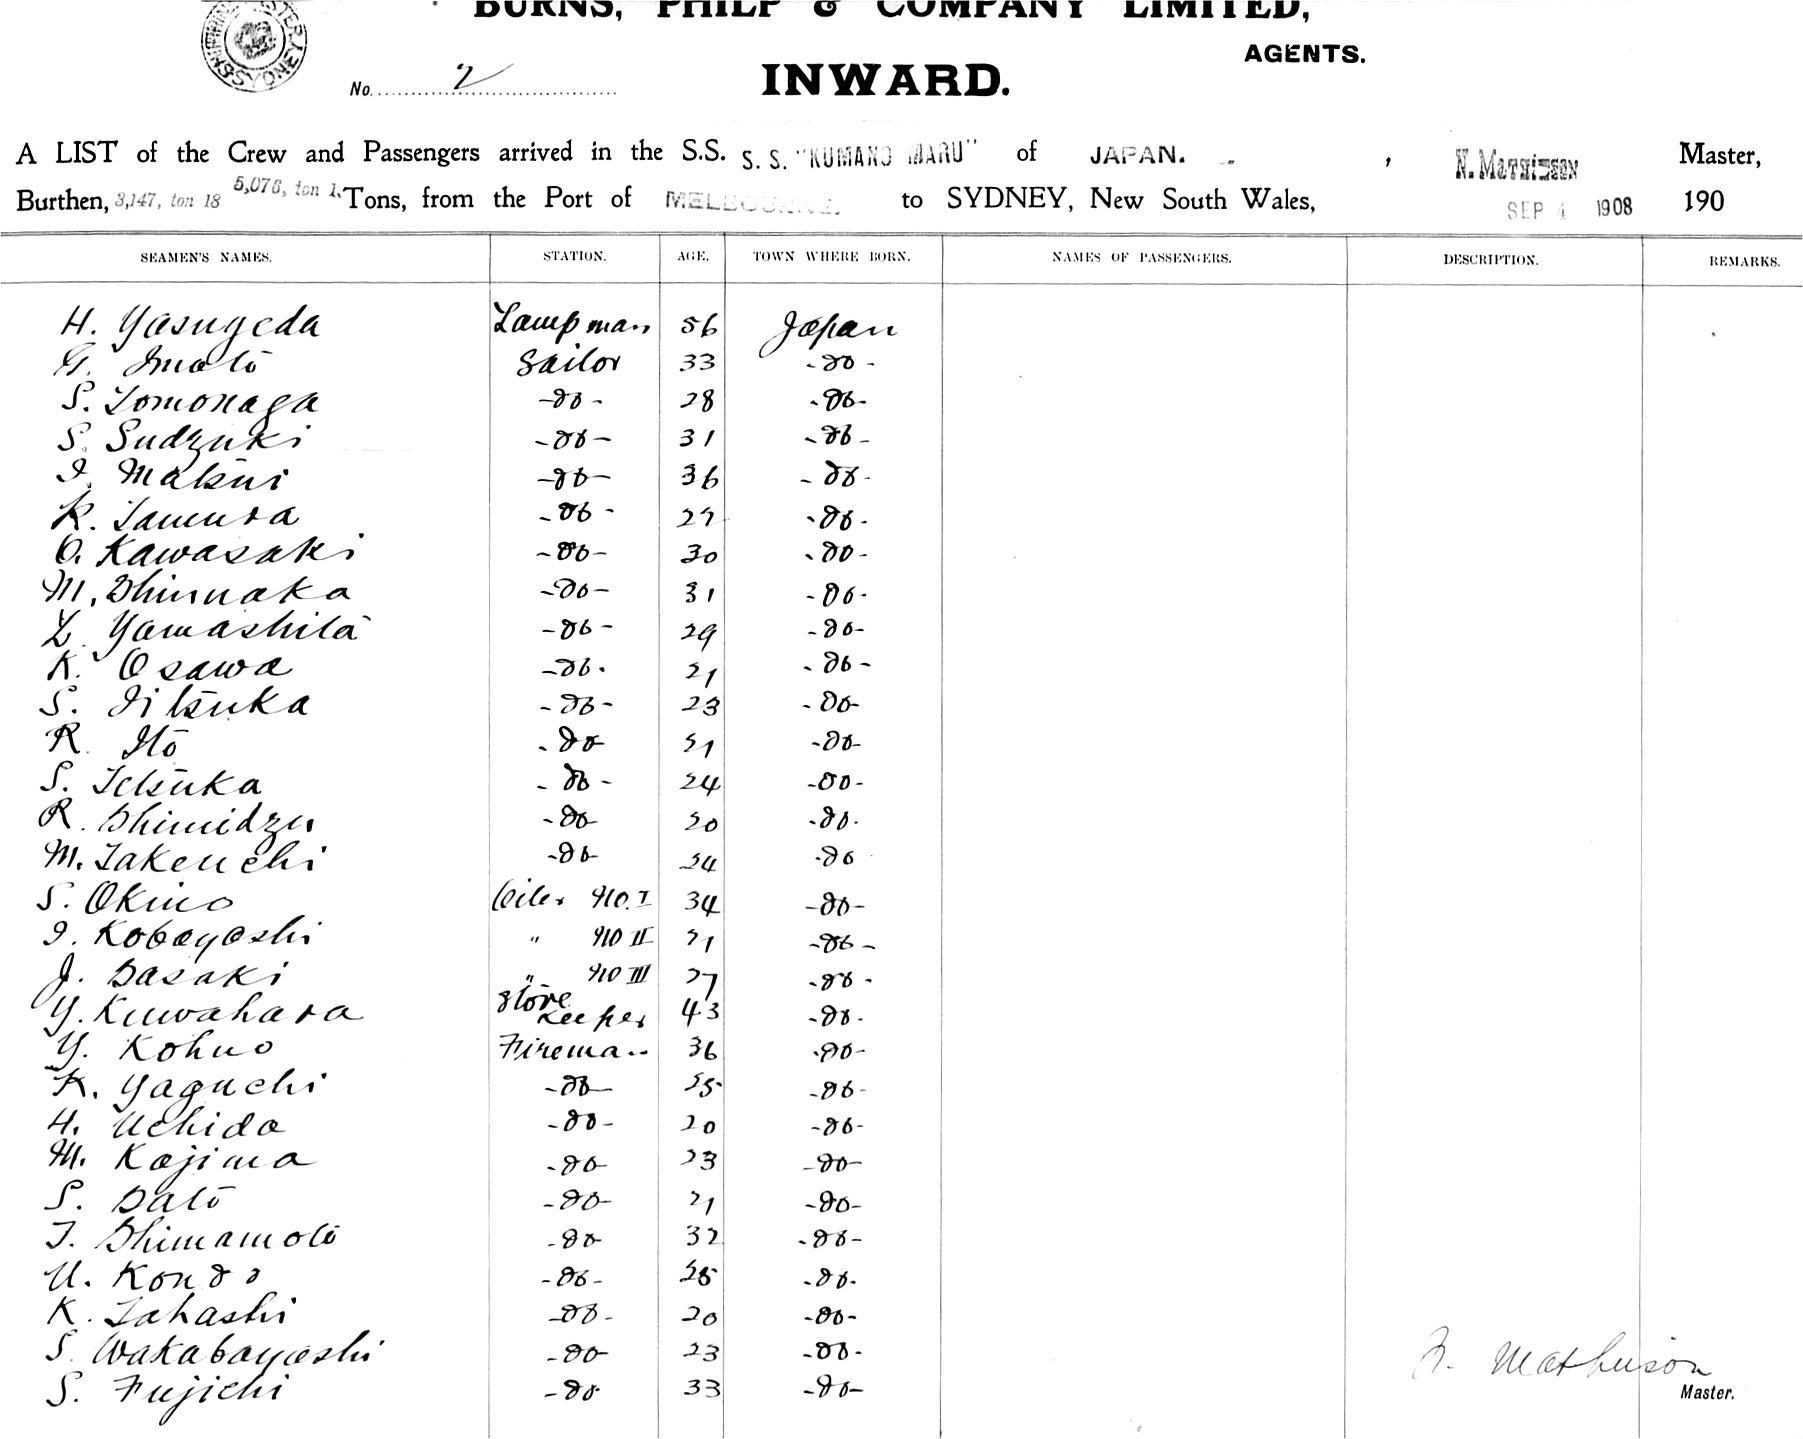 BURNS, PHILP & COMPANY LIMITED,
AGENTS.
No. 2
INWARD.
A LIST of the Crew and Passengers arrived in the S.S. S. S. "KUMANO MARU" of JAPAN. , N. Mathieson Master,
Burthen, 3,147, ton 18 5,076, ton 1. Tons, from the Port of MELBOURNE. to SYDNEY, New South Wales, SEP 4 1908 190
SEAMEN'S NAMES. STATION. AGE. TOWN WHERE BORN. NAMES OF PASSENGERS. DESCRIPTION. REMARKS.
H. Yasugeda Lampman 56 Japan
G. Imoto Sailor 33 -do-
S. Tomonaga -do- 28 -do-
S. Sudzuki -do- 31 -do-
I. Matsui -do- 36 -do-
K. Tamura -do- 27 -do-
O. Kawasaki -do- 30 -do-
M. Shinnaka -do- 31 -do-
Z. Yamashita -do- 29 -do-
K. Osawa -do- 21 -do-
S. Iitsuka -do- 23 -do-
R. Ito -do- 21 -do-
S. Tetsuka -do- 24 -do-
R. Shimidzu -do- 20 -do-
M. Takeuchi -do- 24 -do-
S. Okino Oiler No. I 34 -do-
I. Kobayashi " No II 21 -do-
J. Sasaki " No III 27 -do-
Y. Kuwahara Store Keeper 43 -do-
Y. Kohno Fireman 36 -do-
K. Yaguchi -do- 25 -do-
H. Uchida -do- 20 -do-
M. Kojima -do- 23 -do-
S. Sato -do- 21 -do-
T. Shimamoto -do- 32 -do-
U. Kondo -do- 25 -do-
K. Tahashi -do- 20 -do-
S. Wakabayashi -do- 23 -do-
S. Fujichi -do- 33 -do-
N. Mathieson
Master.